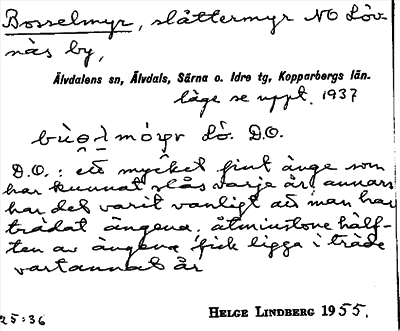 Bosselmyr, slåttermyr NO Löv-
näs by,
Älvdalens sn, Älvdals, Särna o. Idre tg, Kopparbergs län.
läge se uppt. 1937
Lö. D.O.
D.O.: ett mycket fint änge som
har kunnat slås varje år, annars
har det varit vanligt att man har
trädat ängena, åtminstone hälf-
ten av ängena fick ligga i träde
vartannat år
HELGE LINDBERG 1955.
25:36